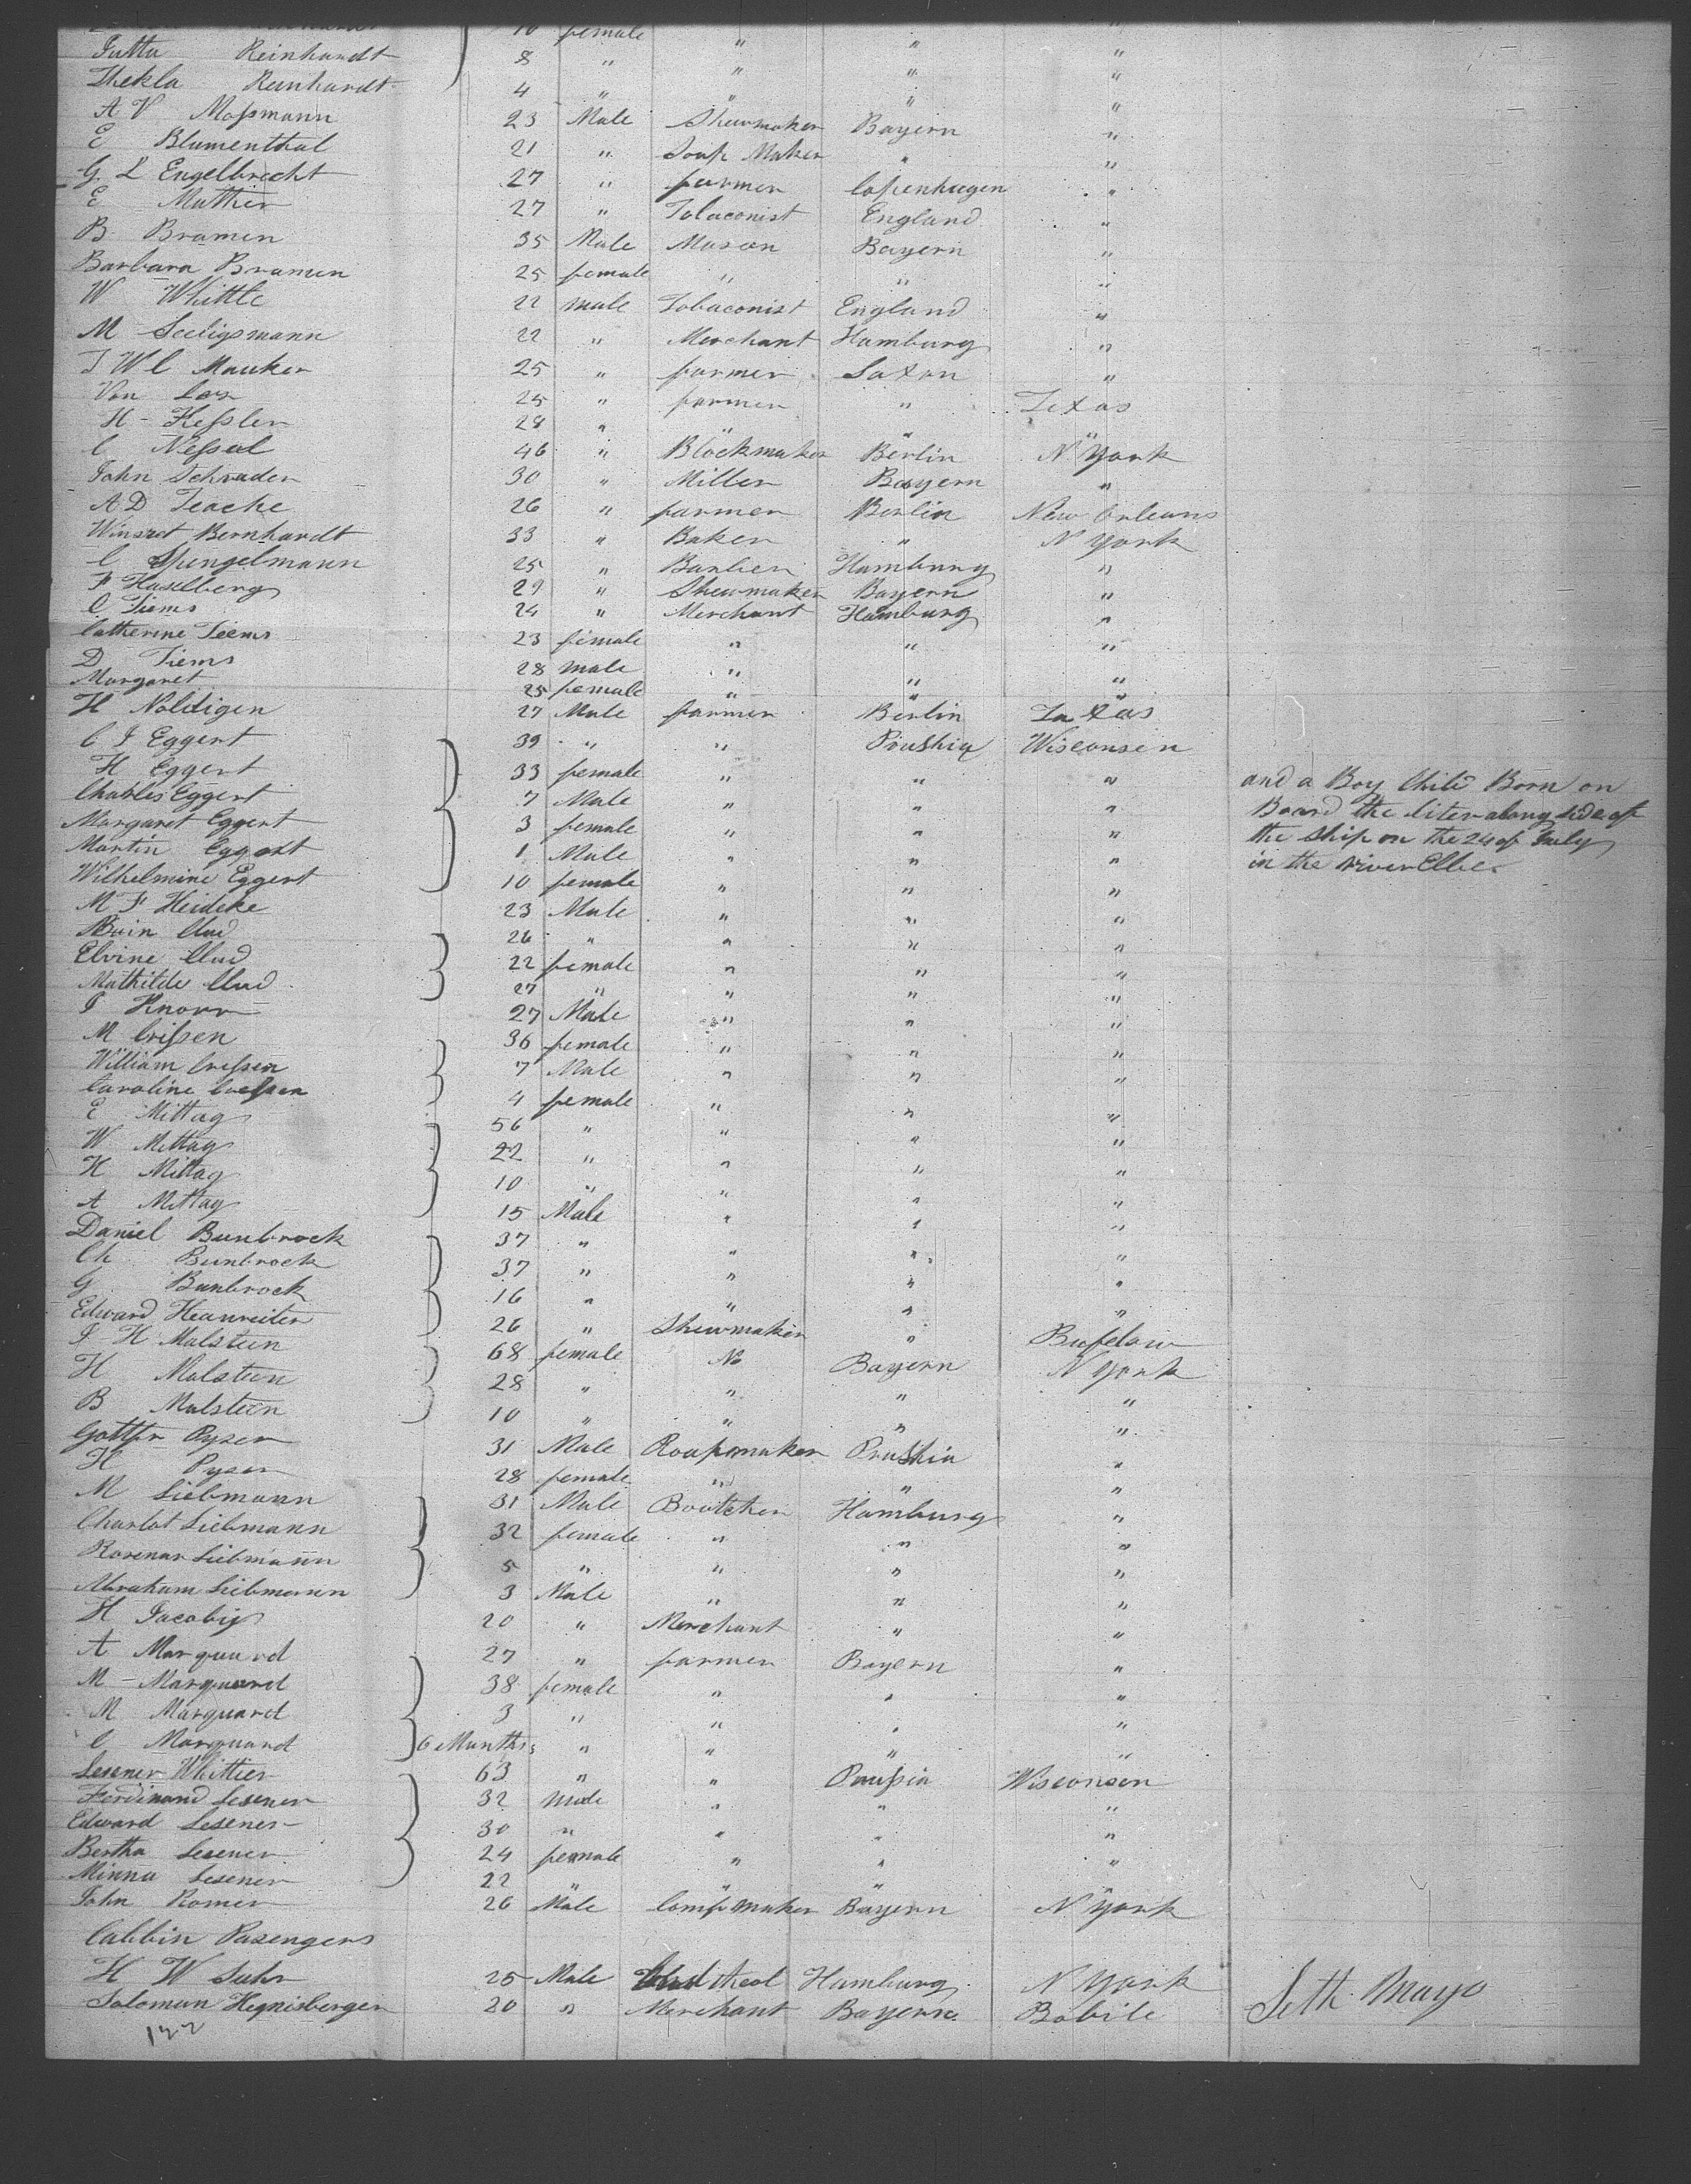 10 female " " "
Jutta Reinhardt 8 " " " "
Thekla Reinhardt 4 " " " "
A V Moſsmann 23 Male Shewmaker Bayern "
E Blumenthal 21 " Soap Maker " "
G. L Engelbrecht 27 " farmer Copenhagen "
E Mathir 27 " Tobaconist England "
B Bramen 35 Male Mason Bayern "
Barbara Bramen 25 female " " "
W Whittle 22 male Tobaconist England "
M Seeligsmann 22 " Merchant Hamburg "
J W C Mauker 25 " farmer Saxon "
Von 25 " farmer " Texas
H - Keſsler 28 " " " "
C Neſsal 46 " Blockmaker Berlin N York
John Schrader 30 " Miller Bayern "
A D Teacke 26 " farmer Berlin New Orleans
Bernhardt 33 " Baker " N York
C Spengelmann 25 " Barber Hamburg "
F Haselberg 29 " Shewmaker Bayern "
C Tiems 24 " Merchant Hamburg "
Catherine Teems 23 female " " "
D Tiems 28 male " " "
Margaret 25 female " " "
H Nolitigen 27 Male farmer Berlin Texas
C J Eggert 39 " " Prushia Wisconsen
H Eggert 33 female " " "
Charles Eggert 7 Male " " "
Margaret Eggert 3 female " " "
Martin Eggert 1 Male " " "
Wilhelmine Eggert 10 female " " "
and a Boy Child Born on
Board the liter along side of
the ship on the 24 of July
in the river Elbe.
M F Heideke 23 Male " " "
26 " " " "
Elvine 22 female " " "
Mathilde 27 " " " "
J Knorr 27 Male " " "
M Criſsen 36 female " " "
William Creſsen 7 Male " " "
Caroline Creſsen 4 female " " "
E Mittag 56 " " " "
W Mittag 22 " " " "
H Mittag 10 " " " "
A Mittag 15 Male " " "
Daniel Bunbrock 37 " " " "
Ch Bunbrock 37 " " " "
G Bunbrock 16 " " " "
Edward Heanreiter 26 " Shewmaker " Bufelow
J H Malsteen 68 female No Bayern N York
H Malsteen 28 " " " "
B Malsteen 10 " " " "
Pyser 31 Male Roapmaker Prushia "
H Pyser 28 female " " "
M Liebmann 31 Male Bootcher Hamburg "
Charlot Liebmann 32 female " " "
Rosenar Liebmann 5 " " " "
Abraham Liebmann 3 Male " " "
H Jacobig 20 " Merchant " "
A Marquard 27 " farmer Bayern "
M - Marquard 38 female " " "
M Marquard 3 " " " "
C Marquard 6 Munths " " " "
Lesener Whittier 63 " " Pruſsia Wisconsen
Ferdinand Lesener 32 Male " " "
Edward Lesener 30 " " " "
Bertha Lesener 24 female " " "
Minna Lesener 22 " " " "
John Romer 26 Male Comp maker Bayern N York
Cabbin Pasengers
H W Suhr 25 Male Hamburg N York
Soloman Hegnisberger 20 " Merchant Bayern Bobile
Seth Mayo
122